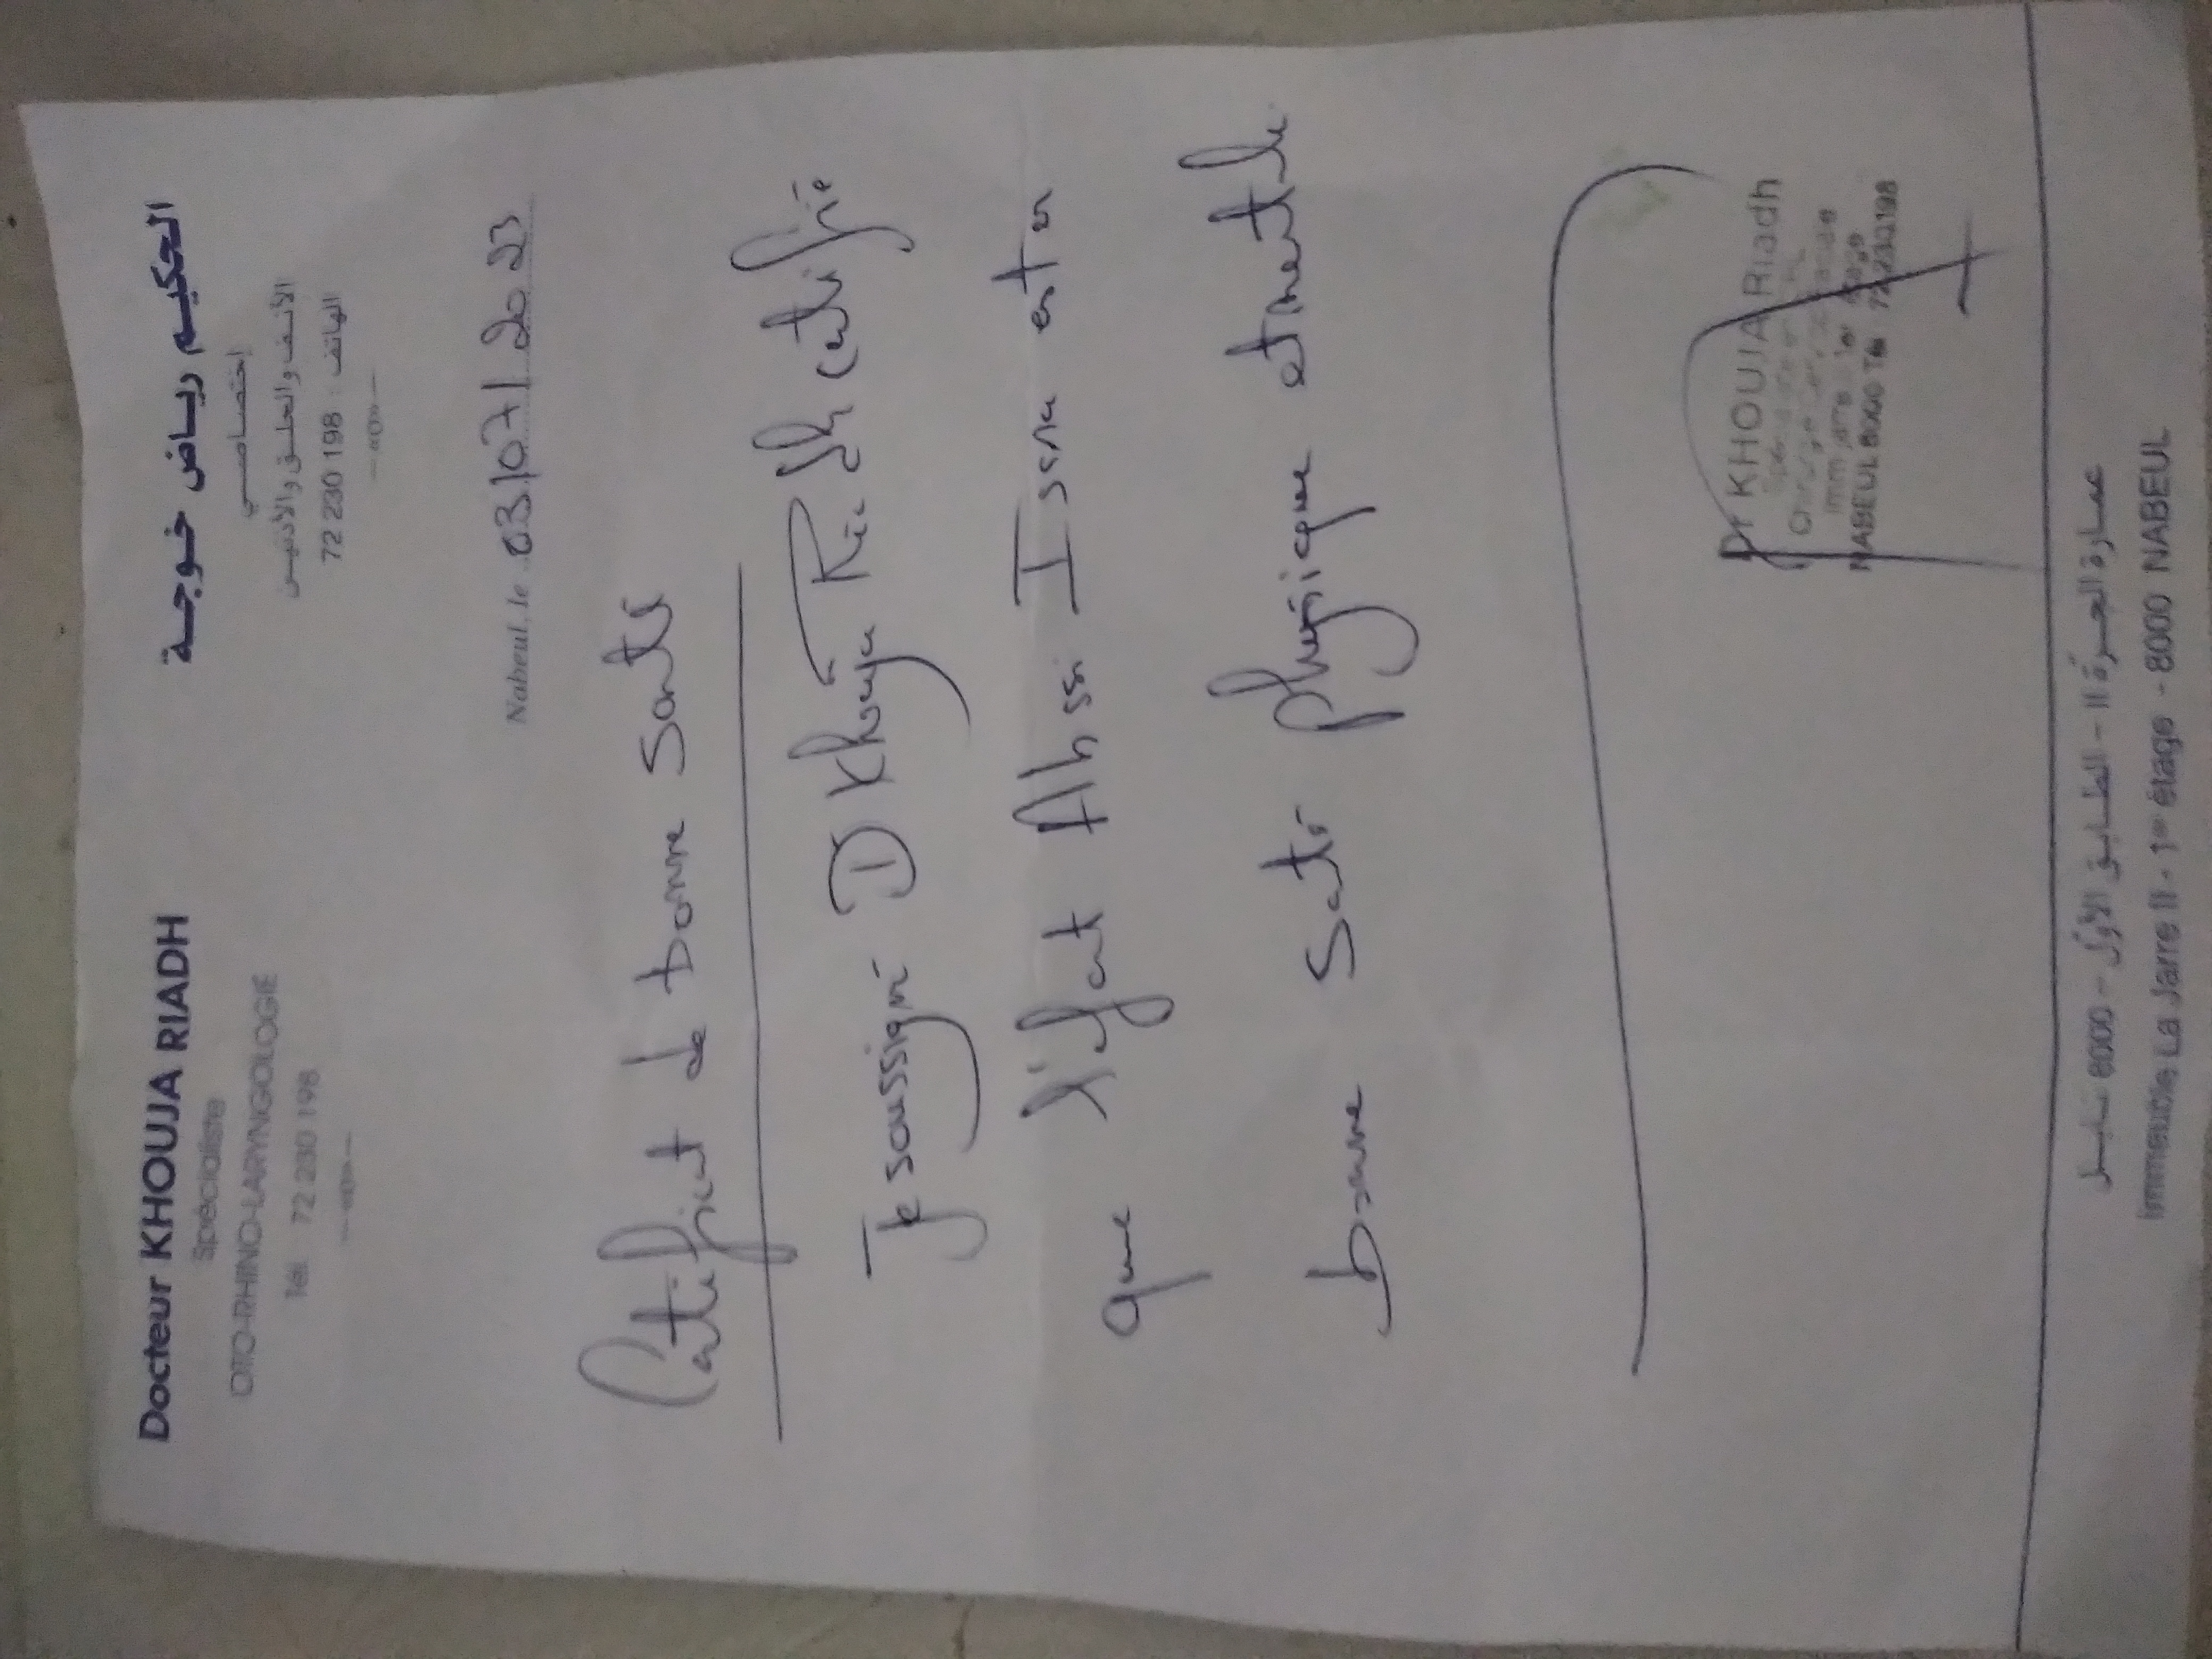 Docteur KHOUJA RIADH
Spécialiste
OTO-RHINO-LARYNGOLOGIE
Tél. 72 230 198
الحكيم رياض خوجة
إختصاصي
الأنف والحلق والأذنين
الهاتف : 72 230 198
Nabeul, le 03/07/2023
Certificat de bonne santé
Je soussigné D Khouja Riadh certifie
que l'ifat Ahssi Issra est en
bonne santé physique et mentale
Dr KHOUJA Riadh
Imm Jarre 1er étage
NABEUL 8000 Tél 72 230198
عمارة الجرة II - الطابق الأول - 8000 نابل
Immeuble La Jarre II - 1er étage - 8000 NABEUL